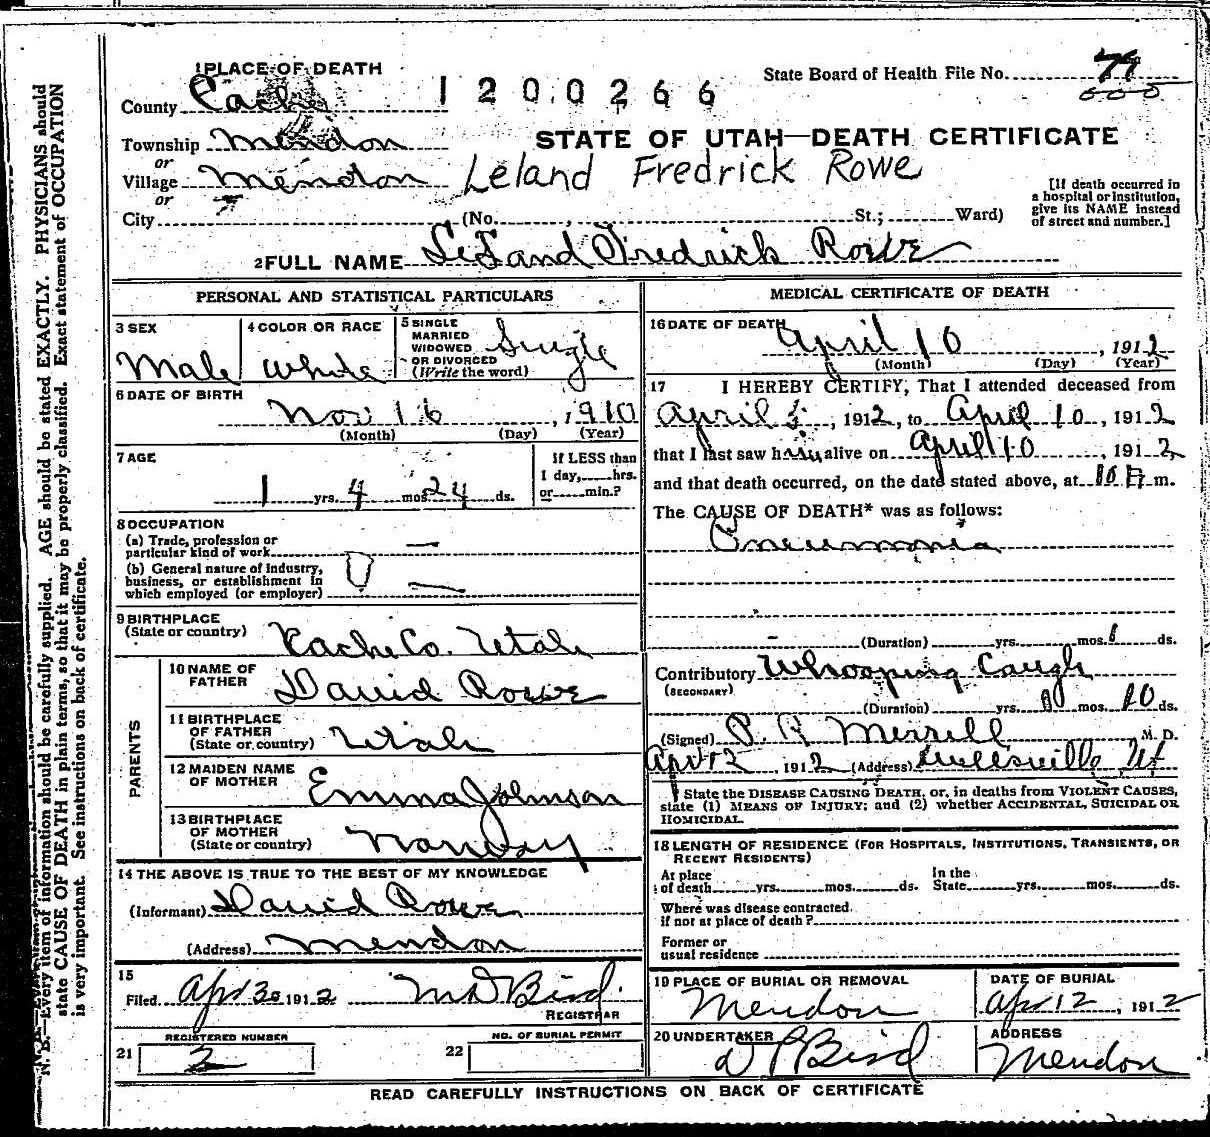 1 PLACE OF DEATH
State Board of Health File No. 79
County Cache
1200266
Township Mendon
STATE OF UTAH—DEATH CERTIFICATE
or
Village Mendon
Leland Fredrick Rowe
or
City (No. , St.; Ward)
[If death occurred in a hospital or institution, give its NAME instead of street and number.]
2 FULL NAME Leland Fredrick Rowe
PERSONAL AND STATISTICAL PARTICULARS
3 SEX
Male
4 COLOR OR RACE
White
5 SINGLE
MARRIED
WIDOWED
OR DIVORCED
(Write the word)
Single
6 DATE OF BIRTH
Nov 16, 1910
(Month) (Day) (Year)
7 AGE
1 yrs. 4 mos. 24 ds.
If LESS than
1 day, hrs.
or min.?
8 OCCUPATION
(a) Trade, profession or
particular kind of work —
(b) General nature of industry,
business, or establishment in
which employed (or employer) —
9 BIRTHPLACE
(State or country) Cache Co. Utah
PARENTS
10 NAME OF
FATHER David Rowe
11 BIRTHPLACE
OF FATHER
(State or country) Utah
12 MAIDEN NAME
OF MOTHER Emma Johnson
13 BIRTHPLACE
OF MOTHER
(State or country) Norway
14 THE ABOVE IS TRUE TO THE BEST OF MY KNOWLEDGE
(Informant) David Rowe
(Address) Mendon
15
Filed Apr 30 1912 M D Bird.
REGISTRAR
REGISTERED NUMBER
21 2
NO. OF BURIAL PERMIT
22
MEDICAL CERTIFICATE OF DEATH
16 DATE OF DEATH
April 10, 1912
(Month) (Day) (Year)
17 I HEREBY CERTIFY, That I attended deceased from
April 5, 1912, to April 10, 1912
that I last saw him alive on April 10, 1912
and that death occurred, on the date stated above, at 10 P.m.
The CAUSE OF DEATH* was as follows:
Pneumonia
(Duration) yrs. mos. ds.
Contributory Whooping Cough
(SECONDARY)
(Duration) yrs. mos. 10 ds.
(Signed) P. A Merrill M. D.
Apr 12, 1912 (Address) Wellsville Ut
State the DISEASE CAUSING DEATH, or, in deaths from VIOLENT CAUSES,
state (1) MEANS OF INJURY; and (2) whether ACCIDENTAL, SUICIDAL OR
HOMICIDAL.
18 LENGTH OF RESIDENCE (FOR HOSPITALS, INSTITUTIONS, TRANSIENTS, OR
RECENT RESIDENTS)
At place
of death yrs. mos. ds.
In the
State yrs. mos. ds.
Where was disease contracted.
if not at place of death?
Former or
usual residence
19 PLACE OF BURIAL OR REMOVAL
Mendon
DATE OF BURIAL
Apr 12, 1912
20 UNDERTAKER
D P Bird
ADDRESS
Mendon
READ CAREFULLY INSTRUCTIONS ON BACK OF CERTIFICATE
N. B.—Every item of information should be carefully supplied. AGE should be stated EXACTLY. PHYSICIANS should
state CAUSE OF DEATH in plain terms, so that it may be properly classified. Exact statement of OCCUPATION
is very important. See instructions on back of certificate.